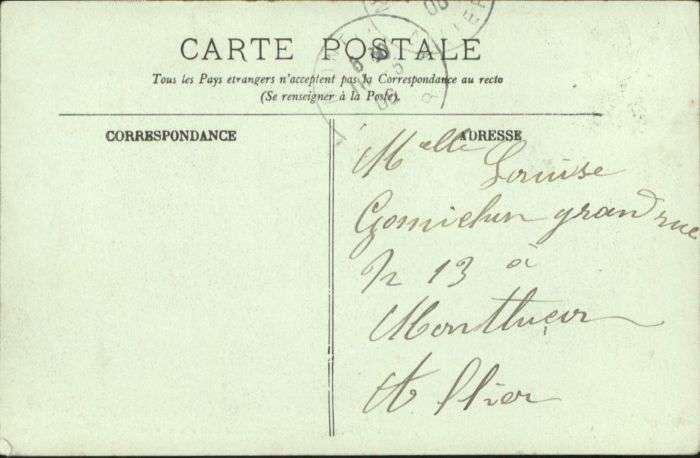 CARTE POSTALE
Tous les Pays etrangers n'acceptent pas la Correspondance au recto
(Se renseigner à la Poste).
CORRESPONDANCE
ADRESSE
Melle Louise
grand rue
N 13 à
Montluçon
Allier